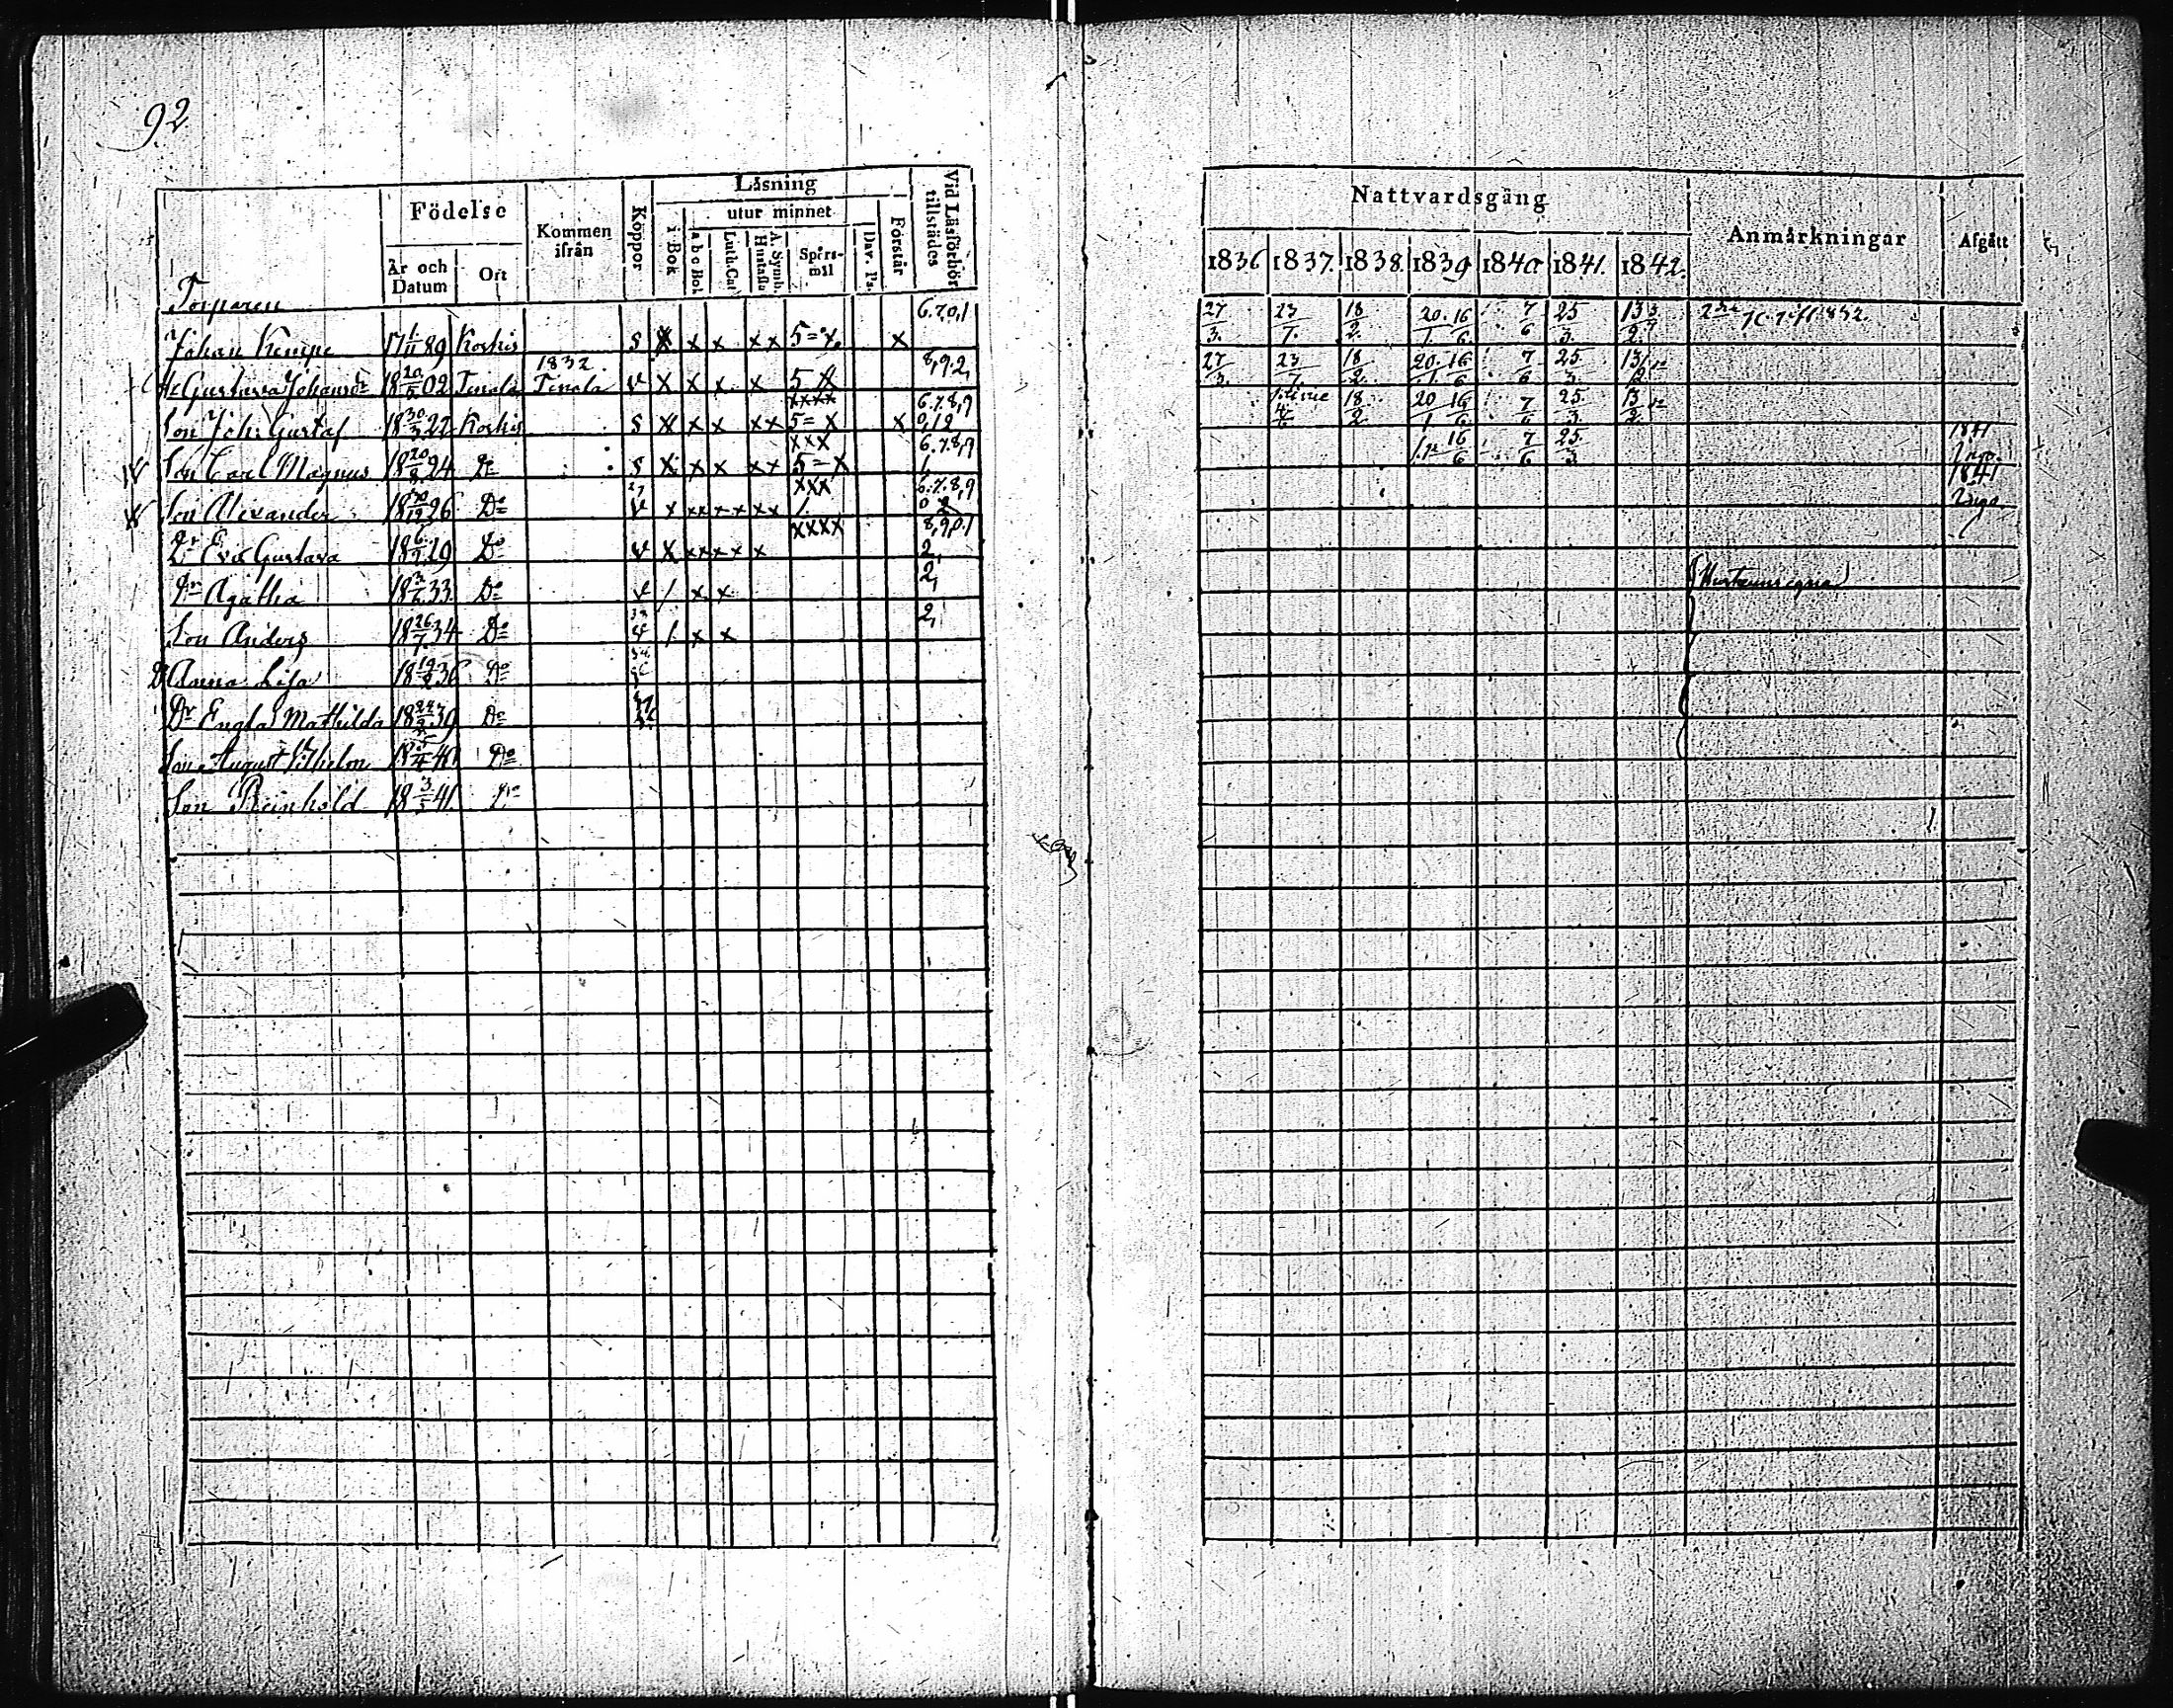 92
Födelse
Kommen ifrån
Koppor
Läsning
utur minnet
Vid Läsförhör tillstädes
År och Datum
Ort
i Bok
a b c Bok
Luth. Cat.
A. Symb. Hustafla
Spörsmål
Dav. Ps.
Förstår
Nattvardsgång
Anmärkningar
Afgått
1836 1837. 1838. 1839 1840 1841. 1842.
Torparen 6.7.0,1
Johan Kempe 17 1/11 89 Koskis S X x x x x 5= x 27/3. 23/7. 18/2. 20/1. 16/6. 7/6 25/3. 13/2.
1832. 8,9.2,
Gustava Johansdr 18 20/ 02 Tenala Tenala v X x x x 5 X 27/3. 23/7. 18/2. 20/1 16/6 7/6 25/3 13/2
xxxx 6.7.8,9
Son Joh: Gustaf 18 30/3 22 Koskis S X x x x x 5= X x 0,12 18/2 20/1 16/6 7/6 25/3 13/2
xxx 6.7.8,9
Son Carl Magnus 18 20/8 24 Do S X x x x x 5= X 1, 16/6 7/6 25/3 1841
xxx 6.7.8,9 1841
Son Alexander 18 30/12 26 Do v x xx x x x x 1. 0
xxxx 8,9,0,1
Dr Eva Gustava 18 6/ 29 Do v X xx x x x 2,
2,
Dr Agatha 18 3/6 33 Do v / x x
2,
Son Anders 18 26/7. 34 Do v 1. x x
D Anna Lisa 18 19/2 36 Do
Dr Engla Mathilda 18 22/ 39 Do
Son August Vilhelm 18 /4 40 Do
Son Reinhold 18 3/5 41. Do